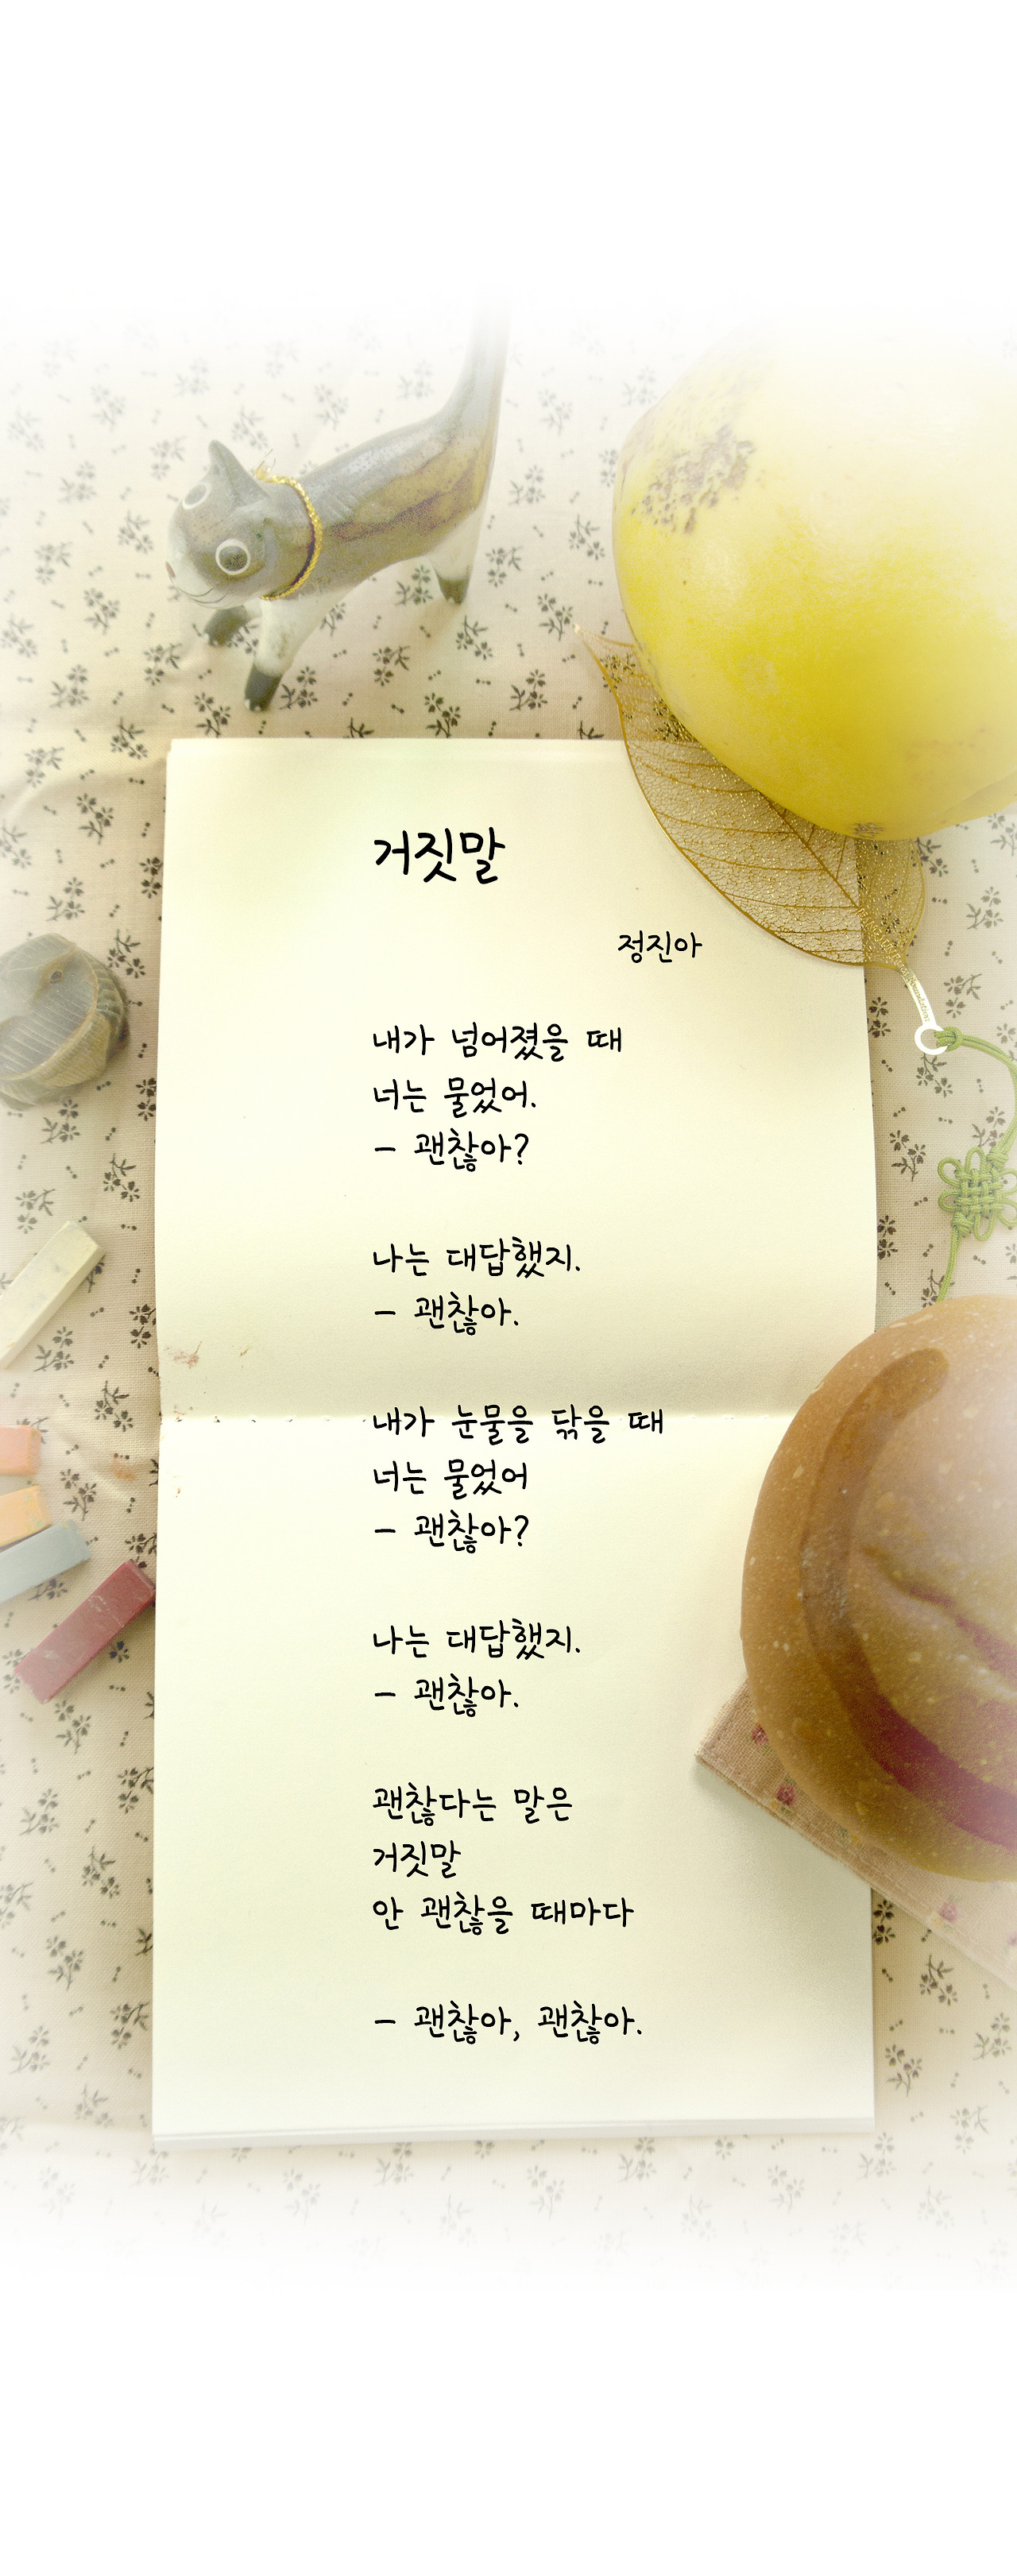 거짓말
정진아
내가 넘어졌을 때
너는 물었어.
- 괜찮아?
나는 대답했지.
- 괜찮아.
내가 눈물을 닦을 때
너는 물었어
- 괜찮아?
나는 대답했지.
- 괜찮아.
괜찮다는 말은
거짓말
안 괜찮을 때마다
- 괜찮아, 괜찮아.